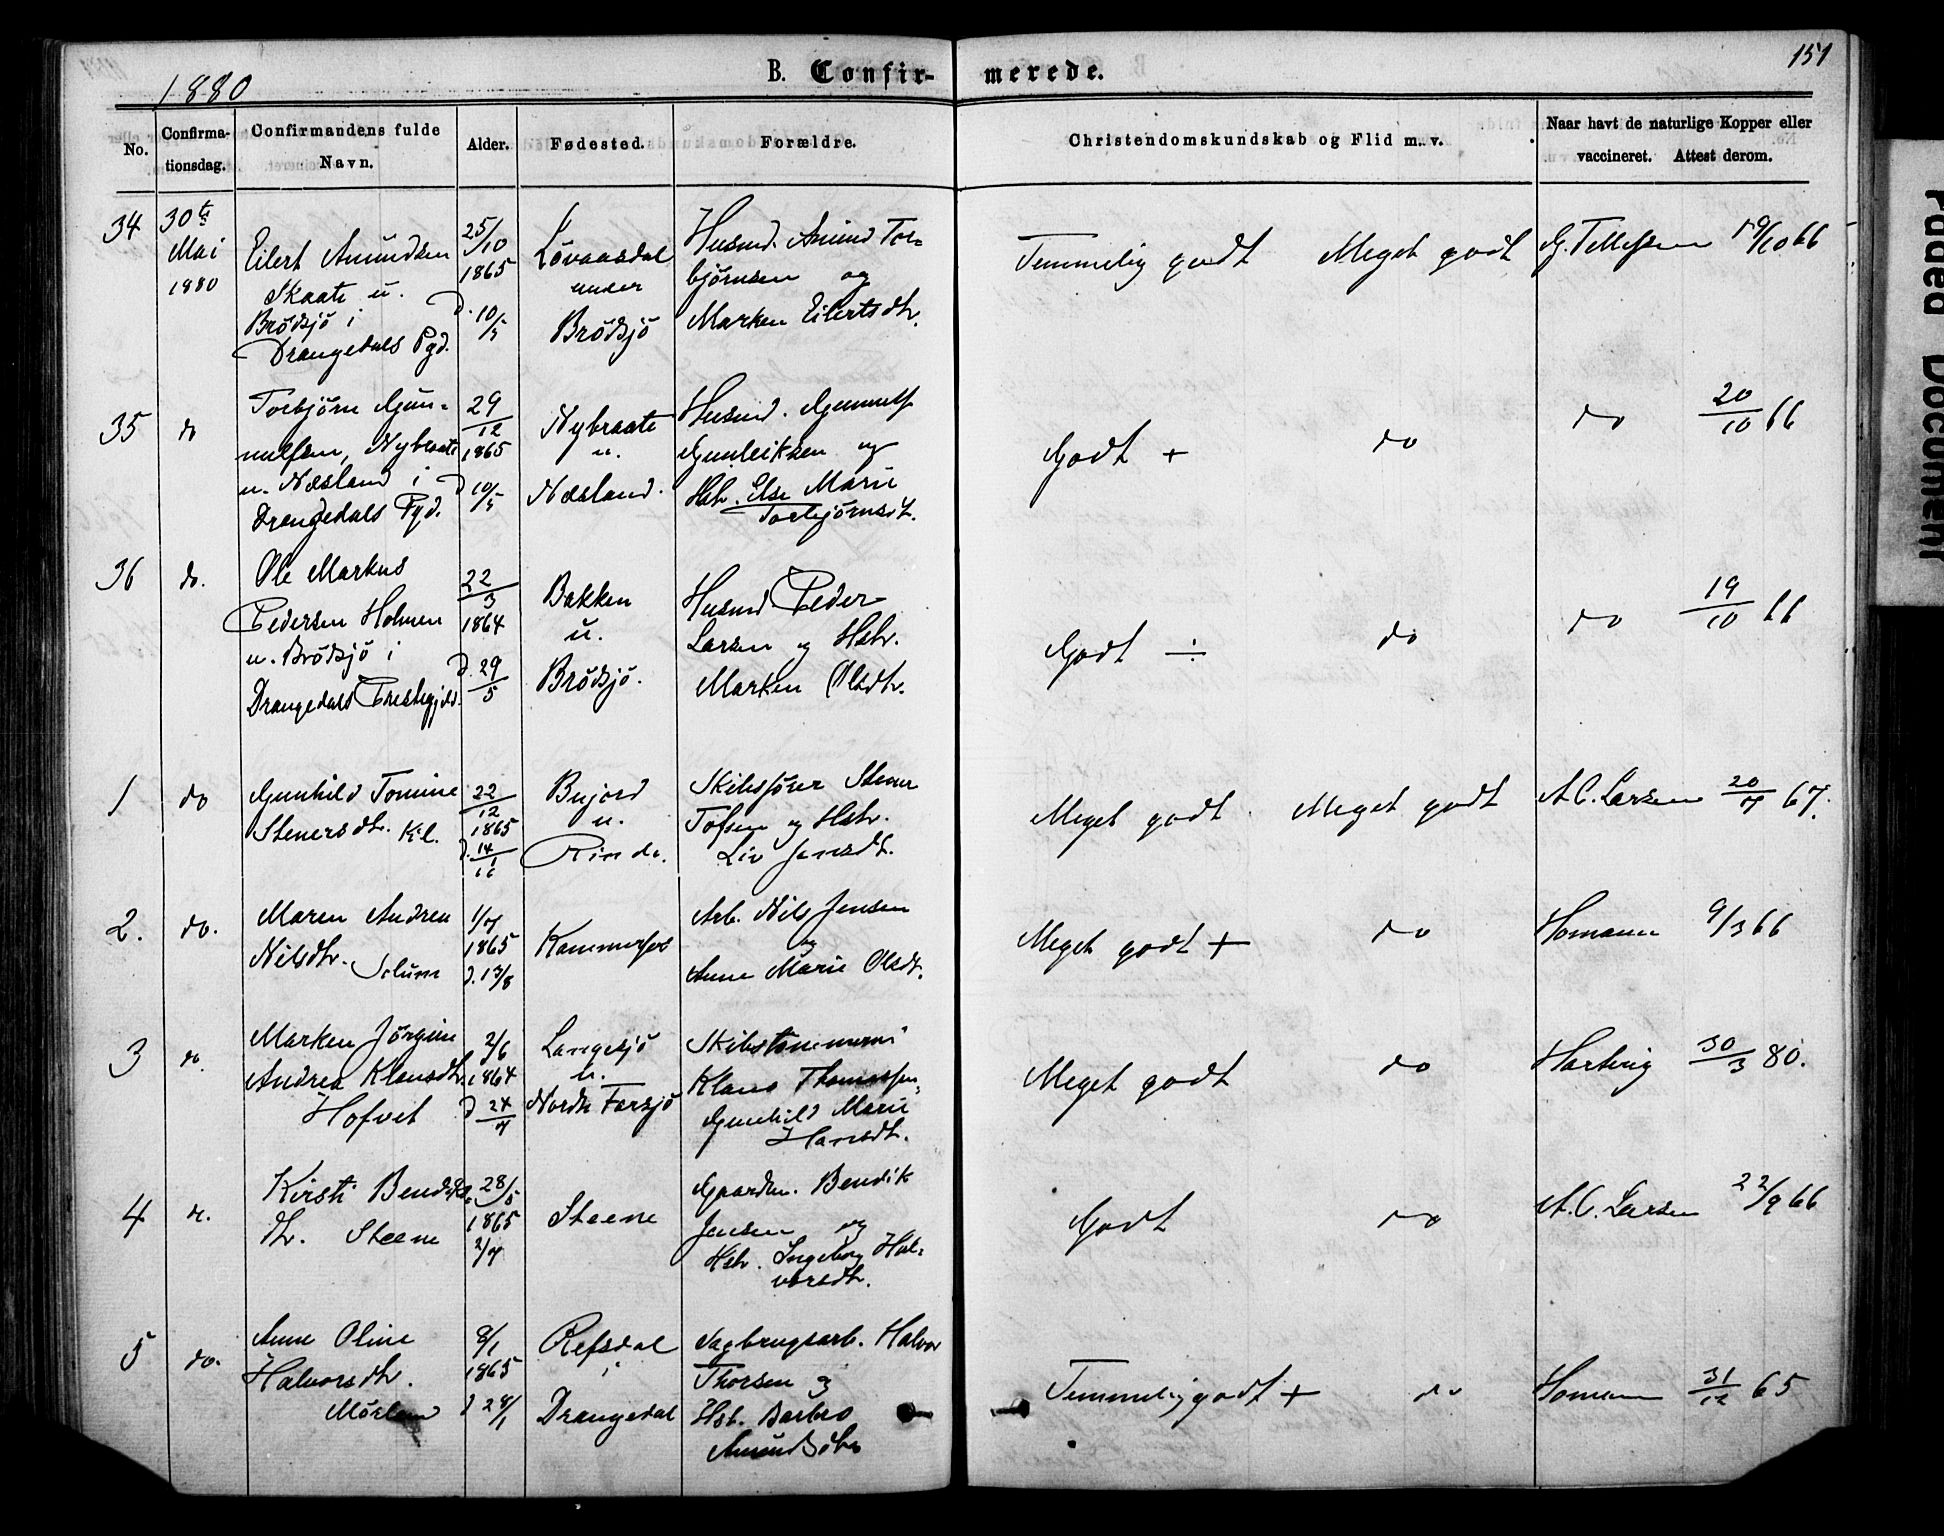 1880
B. Confir-
merede.
151
No.
Confirma-
tionsdag.
Confirmandens fulde
Navn.
Alder.
Fødested.
Forældre.
Christendomskundskab og Flid m. v.
Naar havt de naturlige Kopper eller
vaccineret. Attest derom.
34
30te
Mai
1880
Eilert Amundsen
Skaate u.
Brødsjø i
Drangedals Pgd.
25/10
1865
D. 10/5
Løvaasdal
under
Brødsjø
Husmd. Amund Tor-
bjørnsen og
Marken Eilertsdtr.
Temmelig godt
Meget godt
G. Tellefsen 19/10 66
35
do
Torbjørn Gun-
nulfsen, Nybraate
u. Næsland i
Drangedals Pgd.
29/12
1865
D 10/5
Nybraate
u.
Næsland.
Husmd. Gunnulf
Gunleiksen og
Hstr. Else Marie
Torbjørnsdt.
Godt +
do
do 20/10 66
36
do.
Ole Markus
Pedersen Holmen
u. Brødsjø i
Drangedals Prestegjeld.
22/3
1864
D. 29/5
Bakken
u.
Brødsjø.
Husmd Peder
Larsen og Hstr.
Marken Olsdtr.
Godt ÷
do
do 19/10 66
1
do
Gunhild Tomine
Stenersdtr. Kil.
22/12
1865
D. 14/1
66
Bujord
u.
Rinde.
Skibsfører Stener
Tofsen og Hstr.
Liv Jensdt.
Meget godt
Meget godt
A C. Larsen 20/7 67.
2.
do.
Maren Andrea
Nilsdtr. Solum
1/7
1865
D. 13/8
Kammerfos
Arb. Nils Jensen
og
Anne Marie Olsdt.
Meget godt +
do
Homann 9/3 66
3
do
Marken Jørgine
Andrea Klausdtr.
Hofvet
2/6
1864
D 24/7
Langesjø
u.
Nordre Farsjø
Skibstømmerm
Klaus Thomassen,
Gunhild Marie
Hansdt.
Meget godt
do
Hartvig 30/3 80.
4
do.
Kirsti Bendiks
dtr. Steene
28/5
1865
2/7
Steene
Gaardm. Bendik
Jensen og
Hstr. Ingeborg Hal-
vorsdtr.
Godt
do
A. C. Larsen 22/9 66
5
do.
Anne Oline
Halvorsdtr.
8/1
1865
D 28/1
Refsdal
i
Drangedal
Sagbrugsarb. Halvor
Thorsen og
Hst. Barbro
Amundsdtr
Temmelig godt +
do
Homann 31/12 65